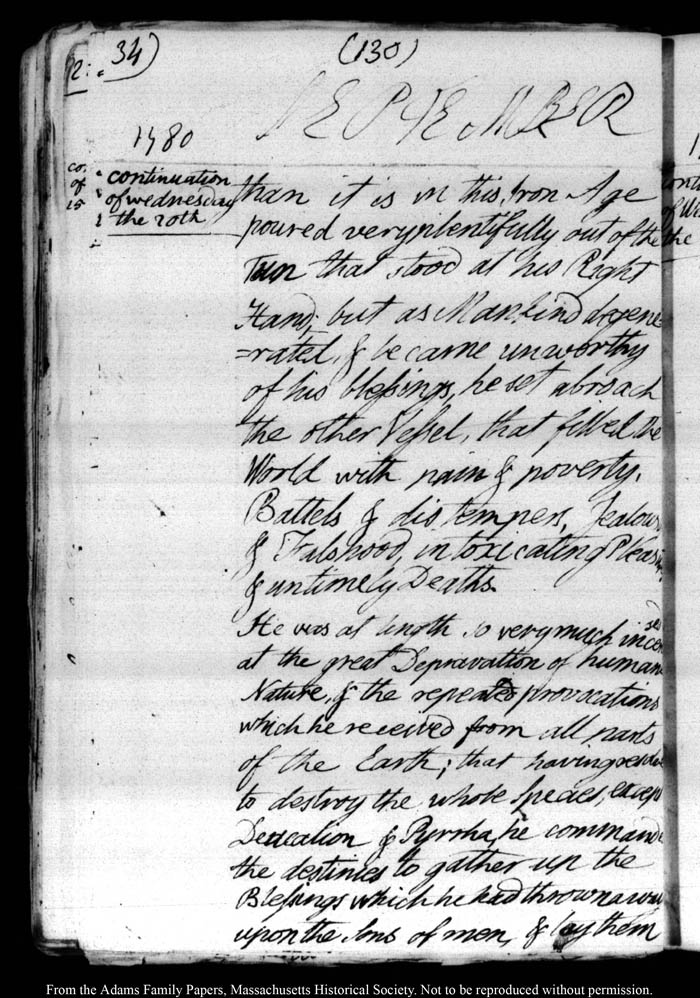 34)
(130)
2:
SEPTEMBER
1780
co.
of
15
continuation
of wednesday
the 20th
than it is in this, Iron Age
poured very plentifully out of the
Tun that stood at his Right
Hand; but as Mankind degene
=rated, & became unworthy
of his blessings, he set abroach
the other Vessel, that filled the
World with pain & poverty.
Battels & distempers, Jealous
& Falshood, intoxicating Pleas
& untimely Deaths.
He was at length so very much incensed
at the great Depravation of human
Nature, & the repeated provocations
which he received from all parts
of the Earth; that having
to destroy the whole Species, except
Deucalion & Pyrrha, he commande
the destinies to gather up the
Blessings which he had thrown away
upon the Sons of men, & lay them
From the Adams Family Papers, Massachusetts Historical Society. Not to be reproduced without permission.